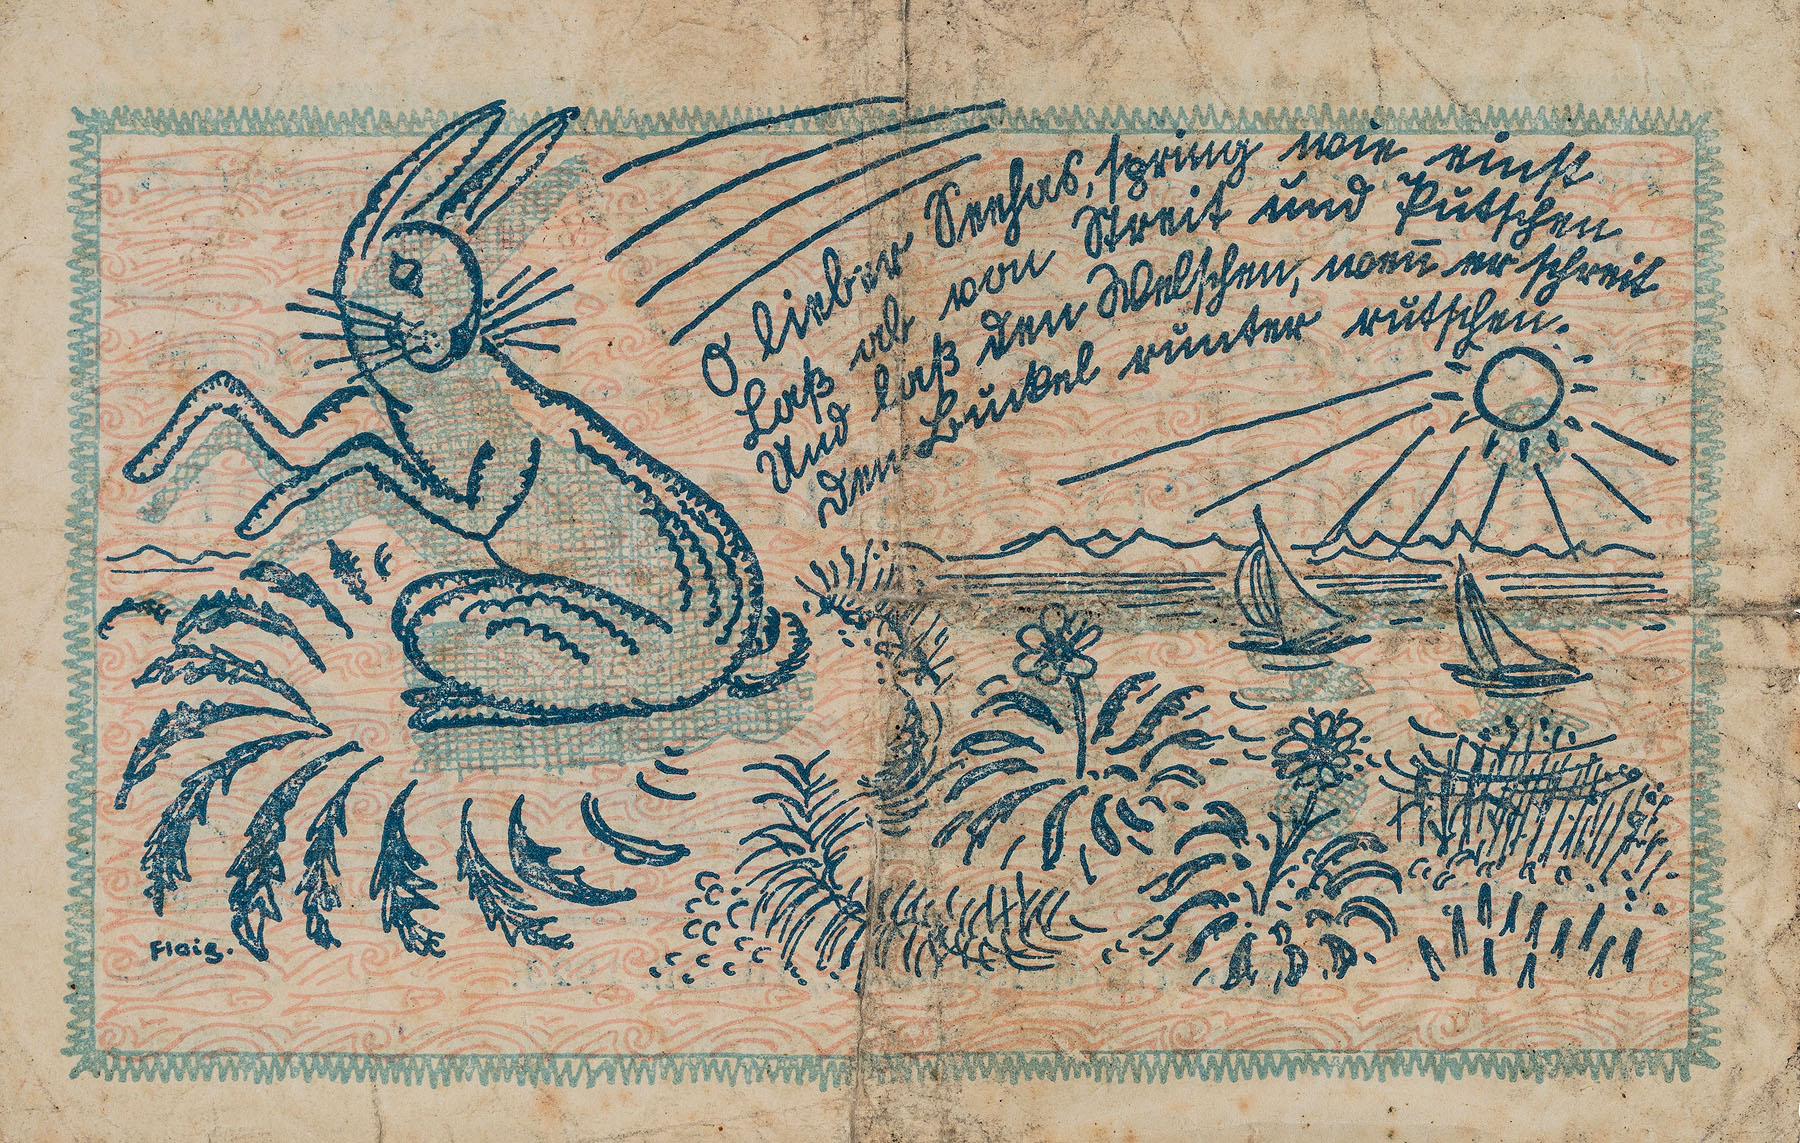 O lieber Seehas, spring wie einst
Laß ab von Streit und Putschen
Und laß den Welschen, wen̄ er schreit
Den Buckel runter rutschen.
Flaig.